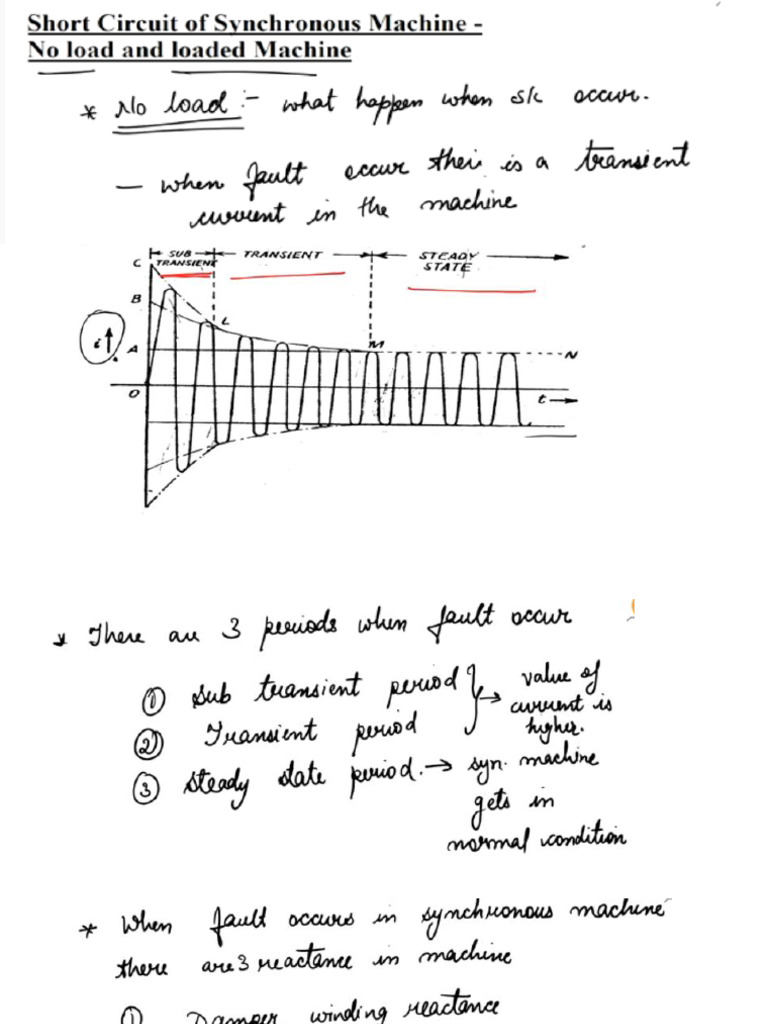 Short Circuit of Synchronous Machine -
No load and loaded Machine
* No load :- what happen when s/c occur.
— when fault occur their is a transient
current in the machine
SUB TRANSIENT
TRANSIENT
STEADY STATE
C
B
L
i↑
A
M
N
O
t→
* There are 3 periods when fault occur !
① Sub transient period } → value of
current is
② Transient period
higher.
③ Steady state period. → syn. machine
gets in
normal condition
* When fault occurs in synchronous machine
there are 3 reactance in machine
① Damper winding reactance